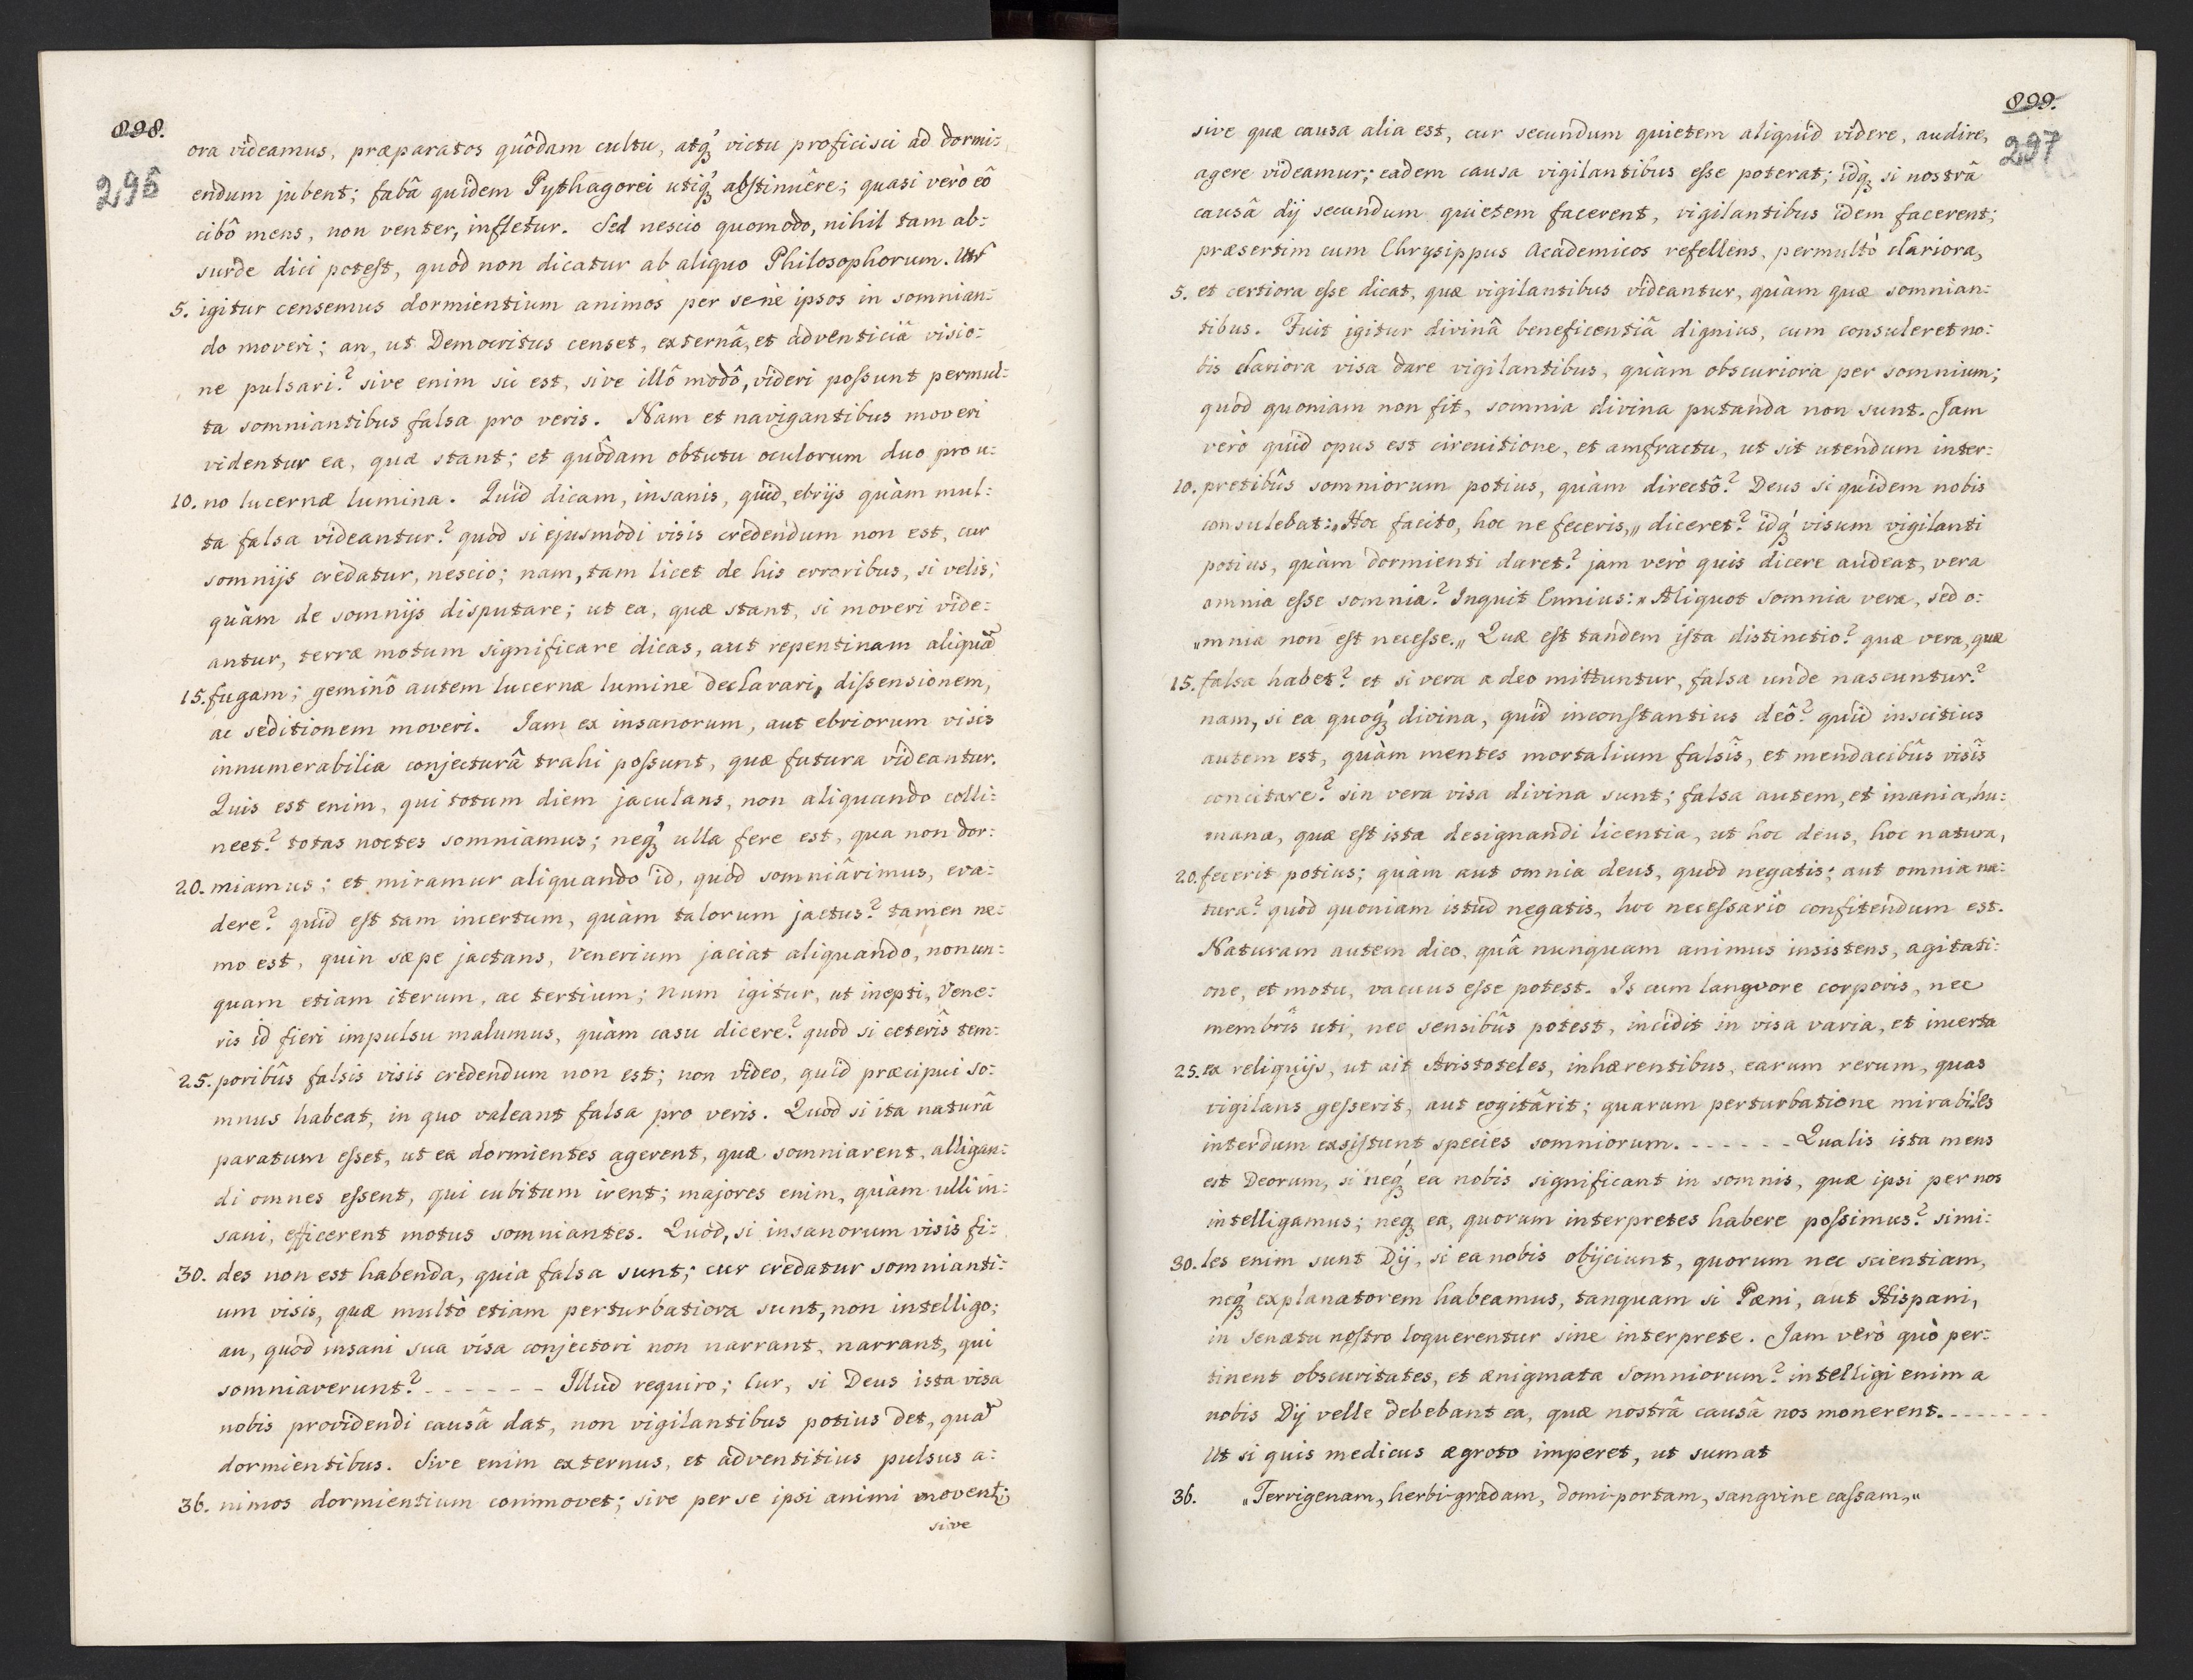 898.
296
ora videamus, præparatos quôdam cultu, atq́; victu proficisci ad dormi:
endum jubent; fabâ quidem Pythagorei utiq́; abstinuêre; quasi verò eô
cibô mens, non venter, infletur. Sed nescio quomodo, nihil tam ab:
surde dici potest, quod non dicatur ab aliquo Philosophorum. Utr
5. igitur censemus dormientium animos per se nè ipsos in somnian:
do moveri; an, ut Democritus censet, externâ, et adventiciâ visio:
ne pulsari? sive enim sic est, sive illô modô, videri possunt permul:
ta somniantibus falsa pro veris. Nam et navigantibus moveri
videntur ea, quæ stant; et quôdam obtutu oculorum duo pro u:
10. no lucernæ lumina. Quid dicam, insanis, quid, ebrijs quàm mul:
ta falsa videantur? quod si ejusmodi visis credendum non est, cur
somnijs credatur, nescio; nam, tam licet de his erroribus, si velis,
quàm de somnijs disputare; ut ea, quæ stant, si moveri vide:
antur, terræ motum significare dicas, aut repentinam aliquã
15. fugam; geminô autem lucernæ lumine declarari, dissensionem,
ac seditionem moveri. Jam ex insanorum, aut ebriorum visis
innumerabilia conjecturâ trahi possunt, quæ futura videantur.
Quis est enim, qui totum diem jaculans, non aliquando colli:
neet? totas noctes somniamus; neq́; ulla fere est, qua non dor:
20. miamus; et miramur aliquando id, quod somniârimus, eva:
dere? quid est tam incertum, quàm talorum jactus? tamen ne:
mo est, quin sæpe jactans, Venerium jaciat aliquando, nonun:
quam etiam iterum, ac tertium; num igitur, ut inepti, Vene:
ris id fieri impulsu malumus, quàm casu dicere? quod si ceterîs tem:
25. poribûs falsis visis credendum non est; non video, quid præcipui so:
mnus habeat, in quo valeant falsa pro veris. Quod si ita naturâ
paratum esset, ut ea dormientes agerent, quæ somniarent, alligan:
di omnes essent, qui cubitum irent; majores enim, quàm ulli in:
sani, efficerent motus somniantes. Quod, si insanorum visis fi:
30. des non est habenda, quia falsa sunt; cur credatur somnianti:
um visis, quæ multò etiam perturbatiora sunt, non intelligo;
an, quod insani sua visa conjectori non narrant, narrant, qui
somniaverunt? - - - - - - Illud requiro; Cur, si Deus ista visa
nobis providendi causâ dat, non vigilantibus potius det, quã
dormientibus. Sive enim externus, et adventitius pulsus a:
36. nimos dormientium commovet; sive per se ipsi animi moventr;
sive
899.
297
sive quæ causa alia est, cur secundum quietem aliquid videre, audire,
agere videamur; eadem causa vigilantibus esse poterat; idq́; si nostrâ
causâ dij secundum quietem facerent, vigilantibus idem facerent;
præsertim cum Chrysippus Academicos refellens, permultò clariora,
5. et certiora esse dicat, quæ vigilantibus videantur, quàm quæ somnian:
tibus. Fuit igitur divinâ beneficentiâ dignius, cum consuleret no:
bis clariora visa dare vigilantibus, quàm obscuriora per somnium;
quod quoniam non fit, somnia divina putanda non sunt. Jam
verò quid opus est circuitione, et amfractu, ut sit utendum inter:
10. pretibûs somniorum potius, quàm directô? Deus si quidem nobis
consulebat: „Hoc facito, hoc ne feceris,„ diceret? idq́; visum vigilanti
potius, quàm dormienti daret? jam verò quis dicere audeat, vera
omnia esse somnia? Inquit Ennius: „Aliquot somnia vera, sed o:
„mnia non est necesse.„ Quæ est tandem ista distinctio? quæ vera, quæ
15. falsa habet? et si vera a deo mittuntur, falsa unde nascuntur?
nam, si ea quoq́; divina, quid inconstantius deô? quid inscitius
autem est, quàm mentes mortalium falsîs, et mendacibûs visîs
concitare? sin vera visa divina sunt; falsa autem, et inania, hu:
mana, quæ est ista designandi licentia, ut hoc deus, hoc natura,
20. fecerit potius; quàm aut omnia deus, quod negatis; aut omnia na:
tura? quod quoniam istud negatis, hoc necessariò confitendum est.
Naturam autem dico, quâ nunquam animus insistens, agitati:
one, et motu, vacuus esse potest. Is cum langvore corporis, nec
membrîs uti, nec sensibûs potest, incidit in visa varia, et incerta
25. ex reliquijs, ut ait Aristoteles, inhærentibus, earum rerum, quas
vigilans gesserit, aut cogitârit; quarum perturbatione mirabiles
interdum exsistunt species somniorum. - - - - - - Qualis ista mens
est Deorum, si neq́; ea nobis significant in somnis, quæ ipsi per nos
intelligamus; neq; ea, quorum interpretes habere possimus? simi:
30. les enim sunt Dij, si ea nobis obijciunt, quorum nec scientiam,
neq́; explanatorem habeamus, tanquam si Pæni, aut Hispani,
in senatu nostro loquerentur sine interprete. Jam verò quò per:
tinent obscuritates, et ænigmata somniorum? intelligi enim a
nobis Dij velle debebant ea, quæ nostrâ causâ nos monerent. - - - - - - -
Ut si quis medicus ægroto imperet, ut sumat
36. „Terrigenam, herbi-gradam, domi-portam, sangvine cassam,„